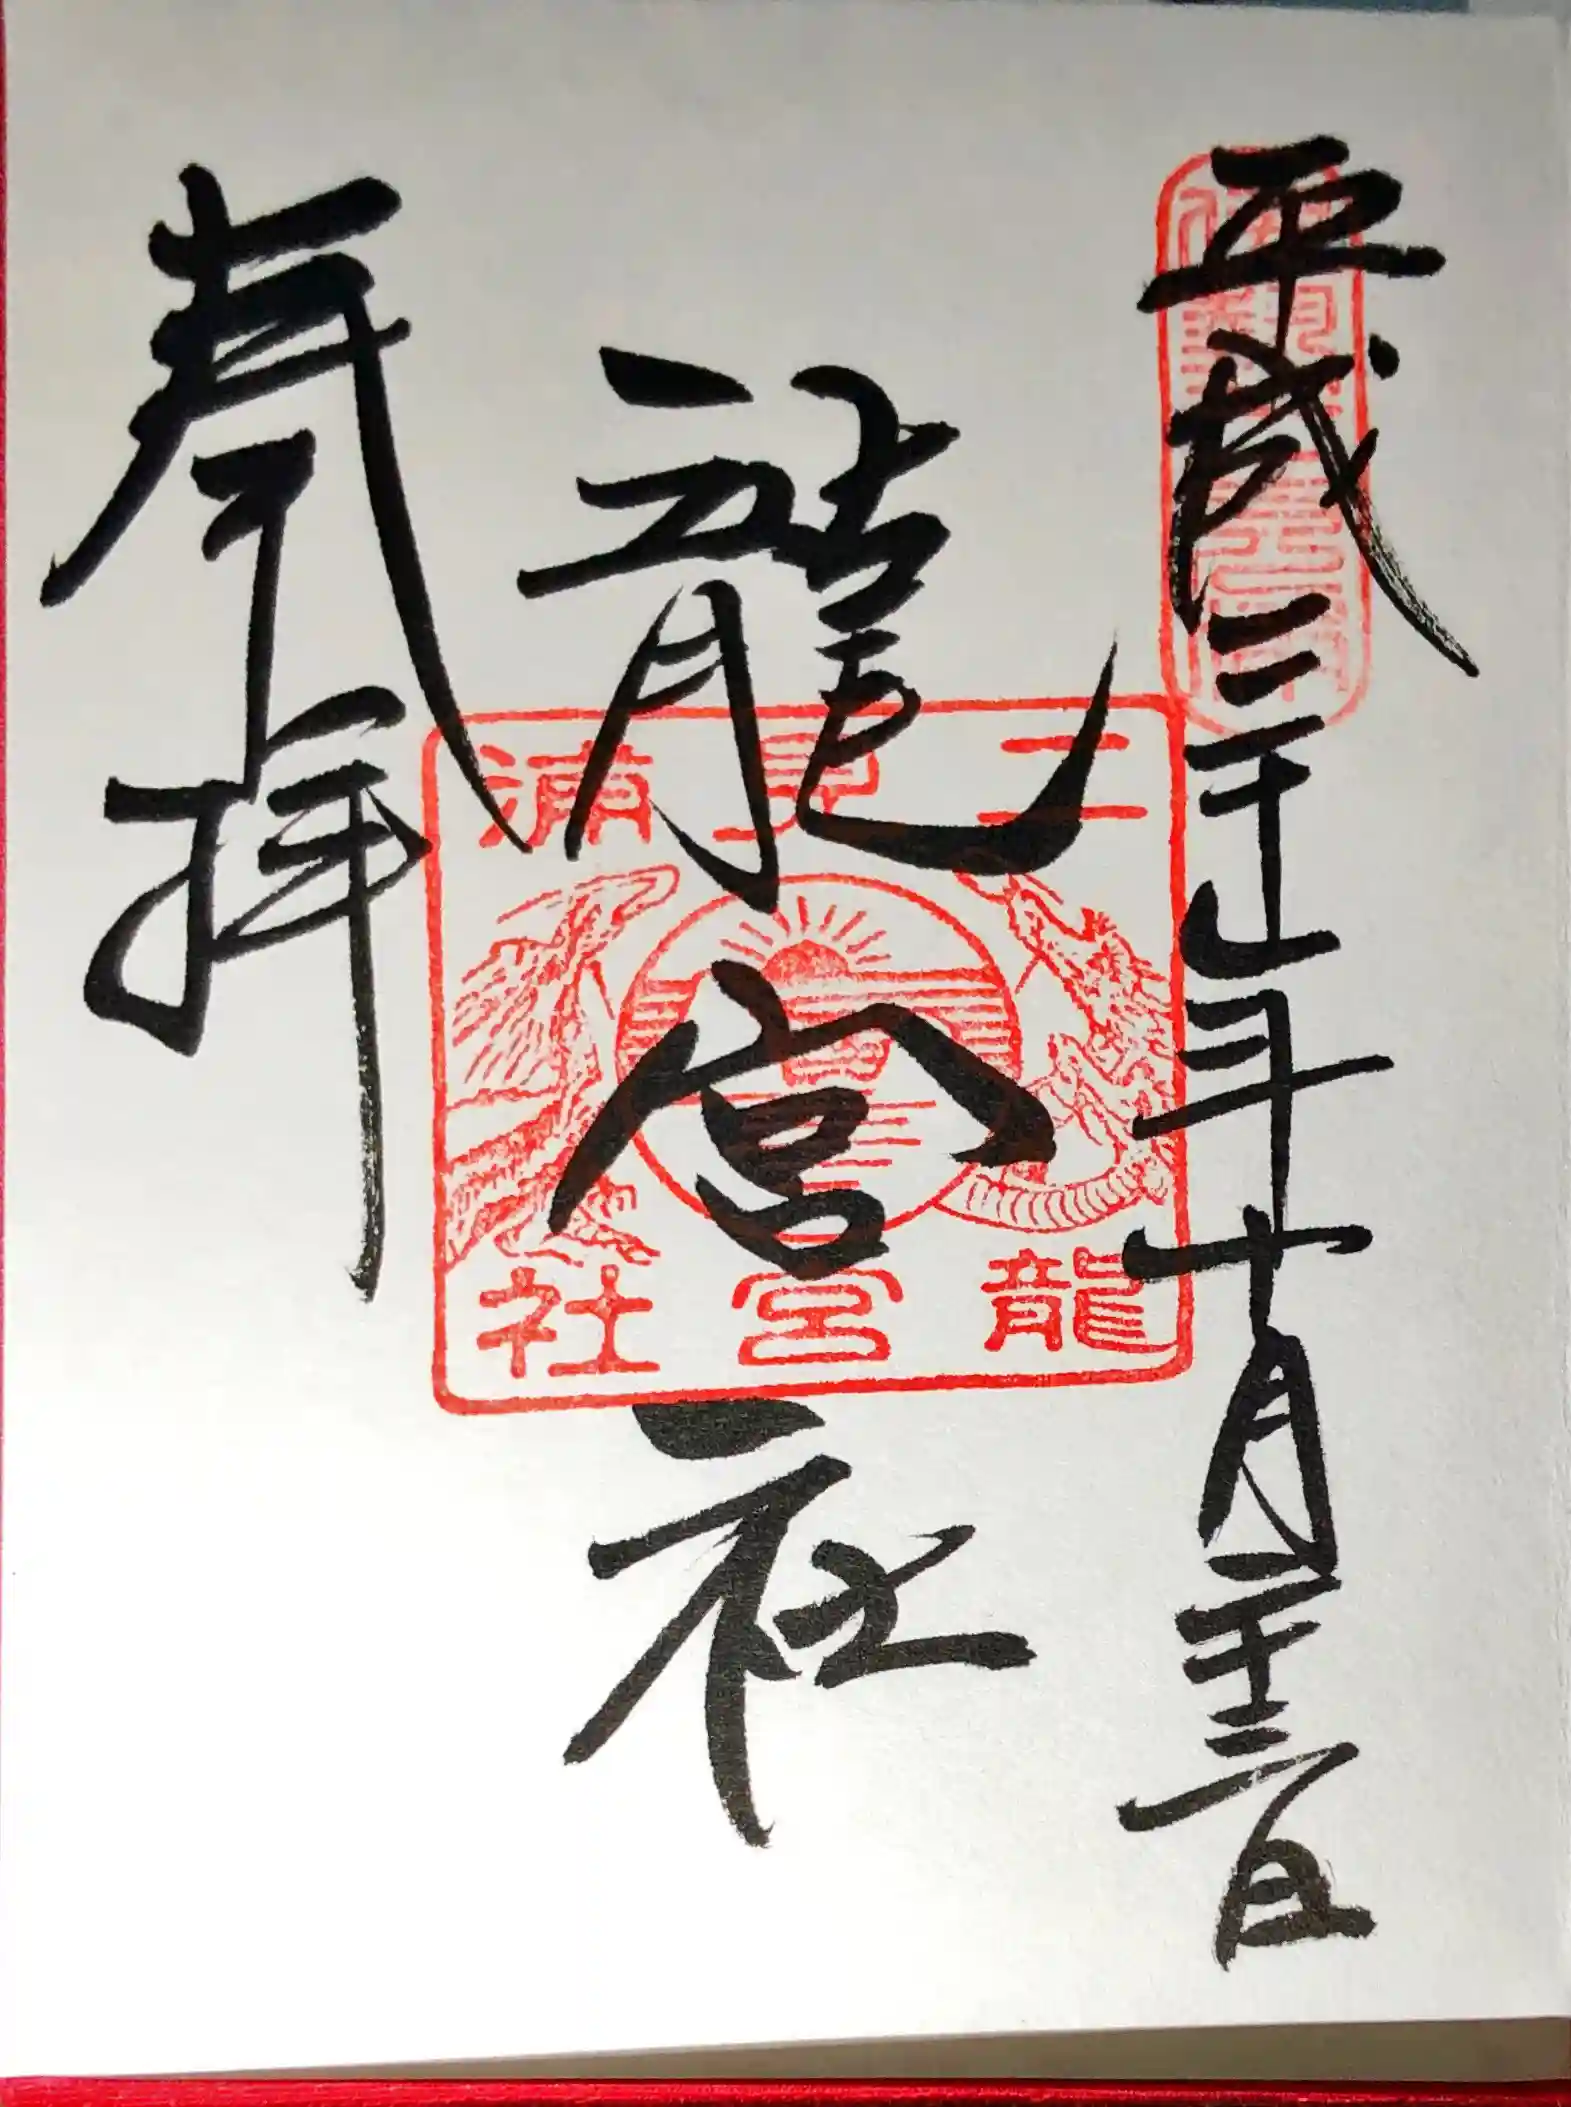 平成三十年十月二十三日
龍宮社
奉拝
二見浦
龍宮社